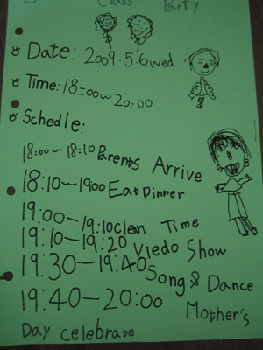 Class Party
Date: 2009.5.6wed
Time: 18:00~20:00
Schedle:
18:00-18:10 Parents Arrive
18:10-1900 Eat Dinner
19:00-19:10 clean Time
19:10-19:20 Viedo Show
19:30-19:40 Song & Dance
19:40-20:00 Mother's
Day celebrate